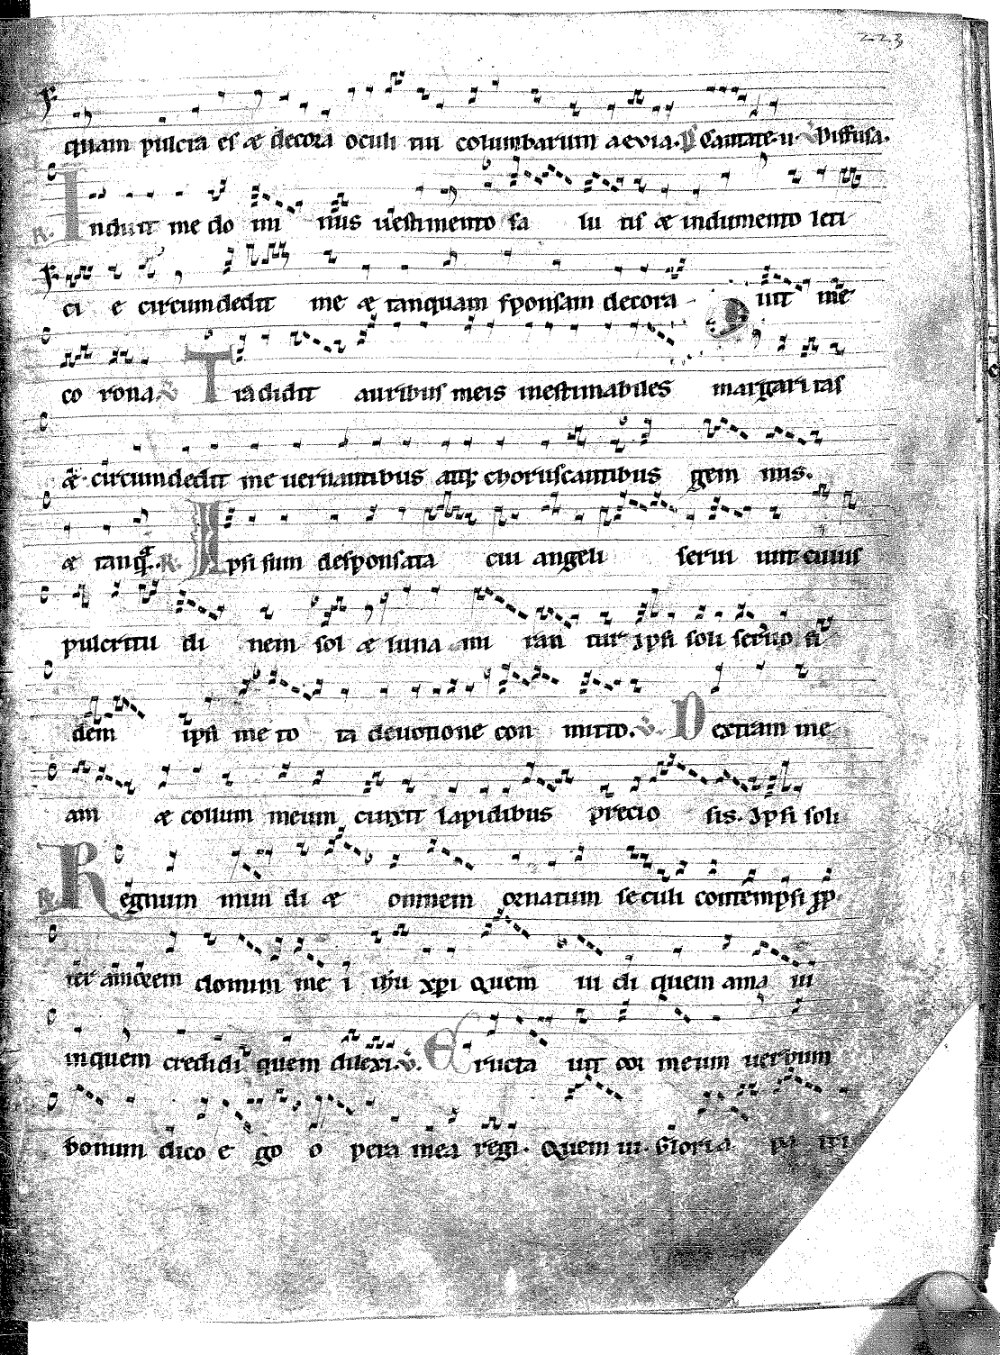 223
quam pulcra es & decora oculi tui columbarum aevia. Cantate. Diffusa.
R. Induit me do mi nus vestimento sa lu tis & indumento leti
ci e circumdedit me & tanquam sponsam decora uit me
co rona. V. Tradidit auribus meis inestimabiles margari tas
& circumdedit me vernantibus atque choruscantibus gem mis.
& tanq̄. R. Ipsi sum desponsata cui angeli servi unt cuius
pulcritu di nem sol & luna mi ran tur ipsi soli servo fi
dem ipsi me to ta devotione con mitto. V. Dextram me
am & collum meum cinxit lapidibus precio sis. Ipsi soli
R. Regnum mun di & omnem ornatum seculi contempsi pp
ter amorem domini me i ihu xpi quem ui di quem ama ui
inquem credidi quem dilexi. V. Eructa uit cor meum verbum
bonum dico e go o pera mea regi. Quem ui. Gloria pa tri